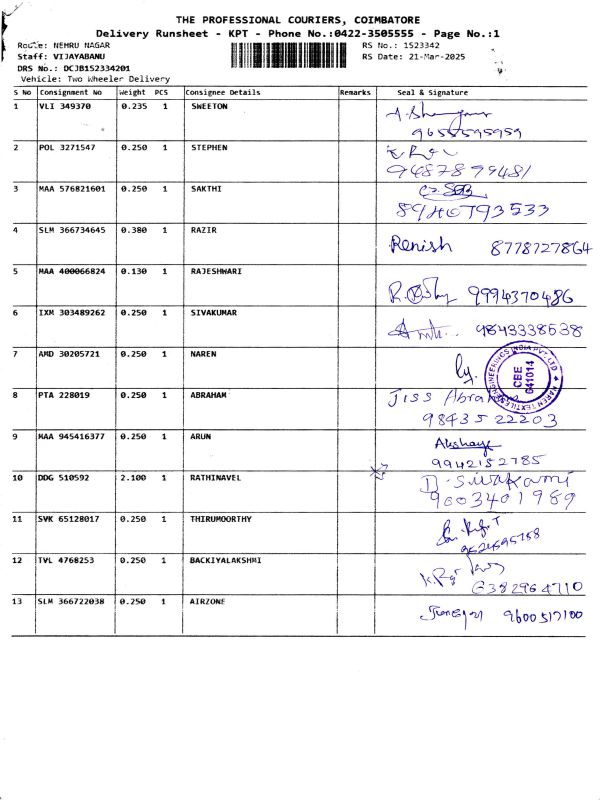 THE PROFESSIONAL COURIERS, COIMBATORE
Delivery Runsheet - KPT - Phone No.:0422-3505555 - Page No.:1
Route: NEHRU NAGAR RS No.: 1523342
Staff: VIJAYABANU RS Date: 21-Mar-2025
DRS No.: DCJB152334201
Vehicle: Two Wheeler Delivery
S No Consignment No Weight PCS Consignee Details Remarks Seal & Signature
1 VLI 349370 0.235 1 SWEETON
9655595959
2 POL 3271547 0.250 1 STEPHEN
9487899481
3 MAA 576821601 0.250 1 SAKTHI
8940793533
4 SLM 366734645 0.380 1 RAZIR Renish 8778727864
5 MAA 400066824 0.130 1 RAJESHWARI
9994370486
6 IXM 303489262 0.250 1 SIVAKUMAR
9843338538
7 AMD 30205721 0.250 1 NAREN
NAREN TEXTILE ENGINEERINGS INDIA PVT LTD
CBE
641014
8 PTA 228019 0.250 1 ABRAHAM Jiss Abraham
9843522203
9 MAA 945416377 0.250 1 ARUN Akshaya
9942152785
10 DDG 510592 2.100 1 RATHINAVEL D. Sivakami
9003401989
11 SVK 65128017 0.250 1 THIRUMOORTHY
12 TVL 4768253 0.250 1 BACKIYALAKSHMI
6382964710
13 SLM 366722038 0.250 1 AIRZONE 9600517100